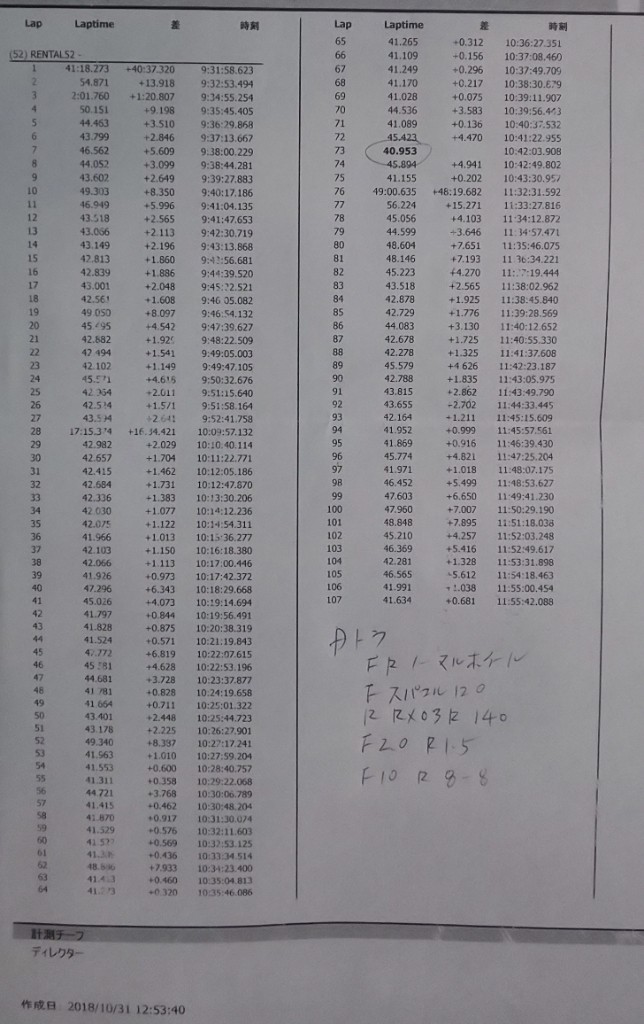 Lap Laptime 差 時刻
(52) RENTAL52 -
1 41:18.273 +40:37.320 9:31:58.623
2 54.871 +13.918 9:32:53.494
3 2:01.760 +1:20.807 9:34:55.254
4 50.151 +9.198 9:35:45.405
5 44.463 +3.510 9:36:29.868
6 43.799 +2.846 9:37:13.667
7 46.562 +5.609 9:38:00.229
8 44.052 +3.099 9:38:44.281
9 43.602 +2.649 9:39:27.883
10 49.303 +8.350 9:40:17.186
11 46.949 +5.996 9:41:04.135
12 43.518 +2.565 9:41:47.653
13 43.066 +2.113 9:42:30.719
14 43.149 +2.196 9:43:13.868
15 42.813 +1.860 9:43:56.681
16 42.839 +1.886 9:44:39.520
17 43.001 +2.048 9:45:22.521
18 42.561 +1.608 9:46:05.082
19 49.050 +8.097 9:46:54.132
20 45.495 +4.542 9:47:39.627
21 42.882 +1.929 9:48:22.509
22 42.494 +1.541 9:49:05.003
23 42.102 +1.149 9:49:47.105
24 45.571 +4.618 9:50:32.676
25 42.964 +2.011 9:51:15.640
26 42.524 +1.571 9:51:58.164
27 43.594 +2.641 9:52:41.758
28 17:15.374 +16:34.421 10:09:57.132
29 42.982 +2.029 10:10:40.114
30 42.657 +1.704 10:11:22.771
31 42.415 +1.462 10:12:05.186
32 42.684 +1.731 10:12:47.870
33 42.336 +1.383 10:13:30.206
34 42.030 +1.077 10:14:12.236
35 42.075 +1.122 10:14:54.311
36 41.966 +1.013 10:15:36.277
37 42.103 +1.150 10:16:18.380
38 42.066 +1.113 10:17:00.446
39 41.926 +0.973 10:17:42.372
40 47.296 +6.343 10:18:29.668
41 45.026 +4.073 10:19:14.694
42 41.797 +0.844 10:19:56.491
43 41.828 +0.875 10:20:38.319
44 41.524 +0.571 10:21:19.843
45 47.772 +6.819 10:22:07.615
46 45.581 +4.628 10:22:53.196
47 44.681 +3.728 10:23:37.877
48 41.781 +0.828 10:24:19.658
49 41.664 +0.711 10:25:01.322
50 43.401 +2.448 10:25:44.723
51 43.178 +2.225 10:26:27.901
52 49.340 +8.387 10:27:17.241
53 41.963 +1.010 10:27:59.204
54 41.553 +0.600 10:28:40.757
55 41.311 +0.358 10:29:22.068
56 44.721 +3.768 10:30:06.789
57 41.415 +0.462 10:30:48.204
58 41.870 +0.917 10:31:30.074
59 41.529 +0.576 10:32:11.603
60 41.522 +0.569 10:32:53.125
61 41.389 +0.436 10:33:34.514
62 48.886 +7.933 10:34:23.400
63 41.413 +0.460 10:35:04.813
64 41.273 +0.320 10:35:46.086
Lap Laptime 差 時刻
65 41.265 +0.312 10:36:27.351
66 41.109 +0.156 10:37:08.460
67 41.249 +0.296 10:37:49.709
68 41.170 +0.217 10:38:30.879
69 41.028 +0.075 10:39:11.907
70 44.536 +3.583 10:39:56.443
71 41.089 +0.136 10:40:37.532
72 45.423 +4.470 10:41:22.955
73 40.953 10:42:03.908
74 45.894 +4.941 10:42:49.802
75 41.155 +0.202 10:43:30.957
76 49:00.635 +48:19.682 11:32:31.592
77 56.224 +15.271 11:33:27.816
78 45.056 +4.103 11:34:12.872
79 44.599 +3.646 11:34:57.471
80 48.604 +7.651 11:35:46.075
81 48.146 +7.193 11:36:34.221
82 45.223 +4.270 11:37:19.444
83 43.518 +2.565 11:38:02.962
84 42.878 +1.925 11:38:45.840
85 42.729 +1.776 11:39:28.569
86 44.083 +3.130 11:40:12.652
87 42.678 +1.725 11:40:55.330
88 42.278 +1.325 11:41:37.608
89 45.579 +4.626 11:42:23.187
90 42.788 +1.835 11:43:05.975
91 43.815 +2.862 11:43:49.790
92 43.655 +2.702 11:44:33.445
93 42.164 +1.211 11:45:15.609
94 41.952 +0.999 11:45:57.561
95 41.869 +0.916 11:46:39.430
96 45.774 +4.821 11:47:25.204
97 41.971 +1.018 11:48:07.175
98 46.452 +5.499 11:48:53.627
99 47.603 +6.650 11:49:41.230
100 47.960 +7.007 11:50:29.190
101 48.848 +7.895 11:51:18.038
102 45.210 +4.257 11:52:03.248
103 46.369 +5.416 11:52:49.617
104 42.281 +1.328 11:53:31.898
105 46.565 +5.612 11:54:18.463
106 41.991 +1.038 11:55:00.454
107 41.634 +0.681 11:55:42.088
FR ノーマルホイール
F スパコル 120
R RX03R 140
F20 R1.5
F10 R 8-8
計測チーフ
ディレクター
作成日 2018/10/31 12:53:40